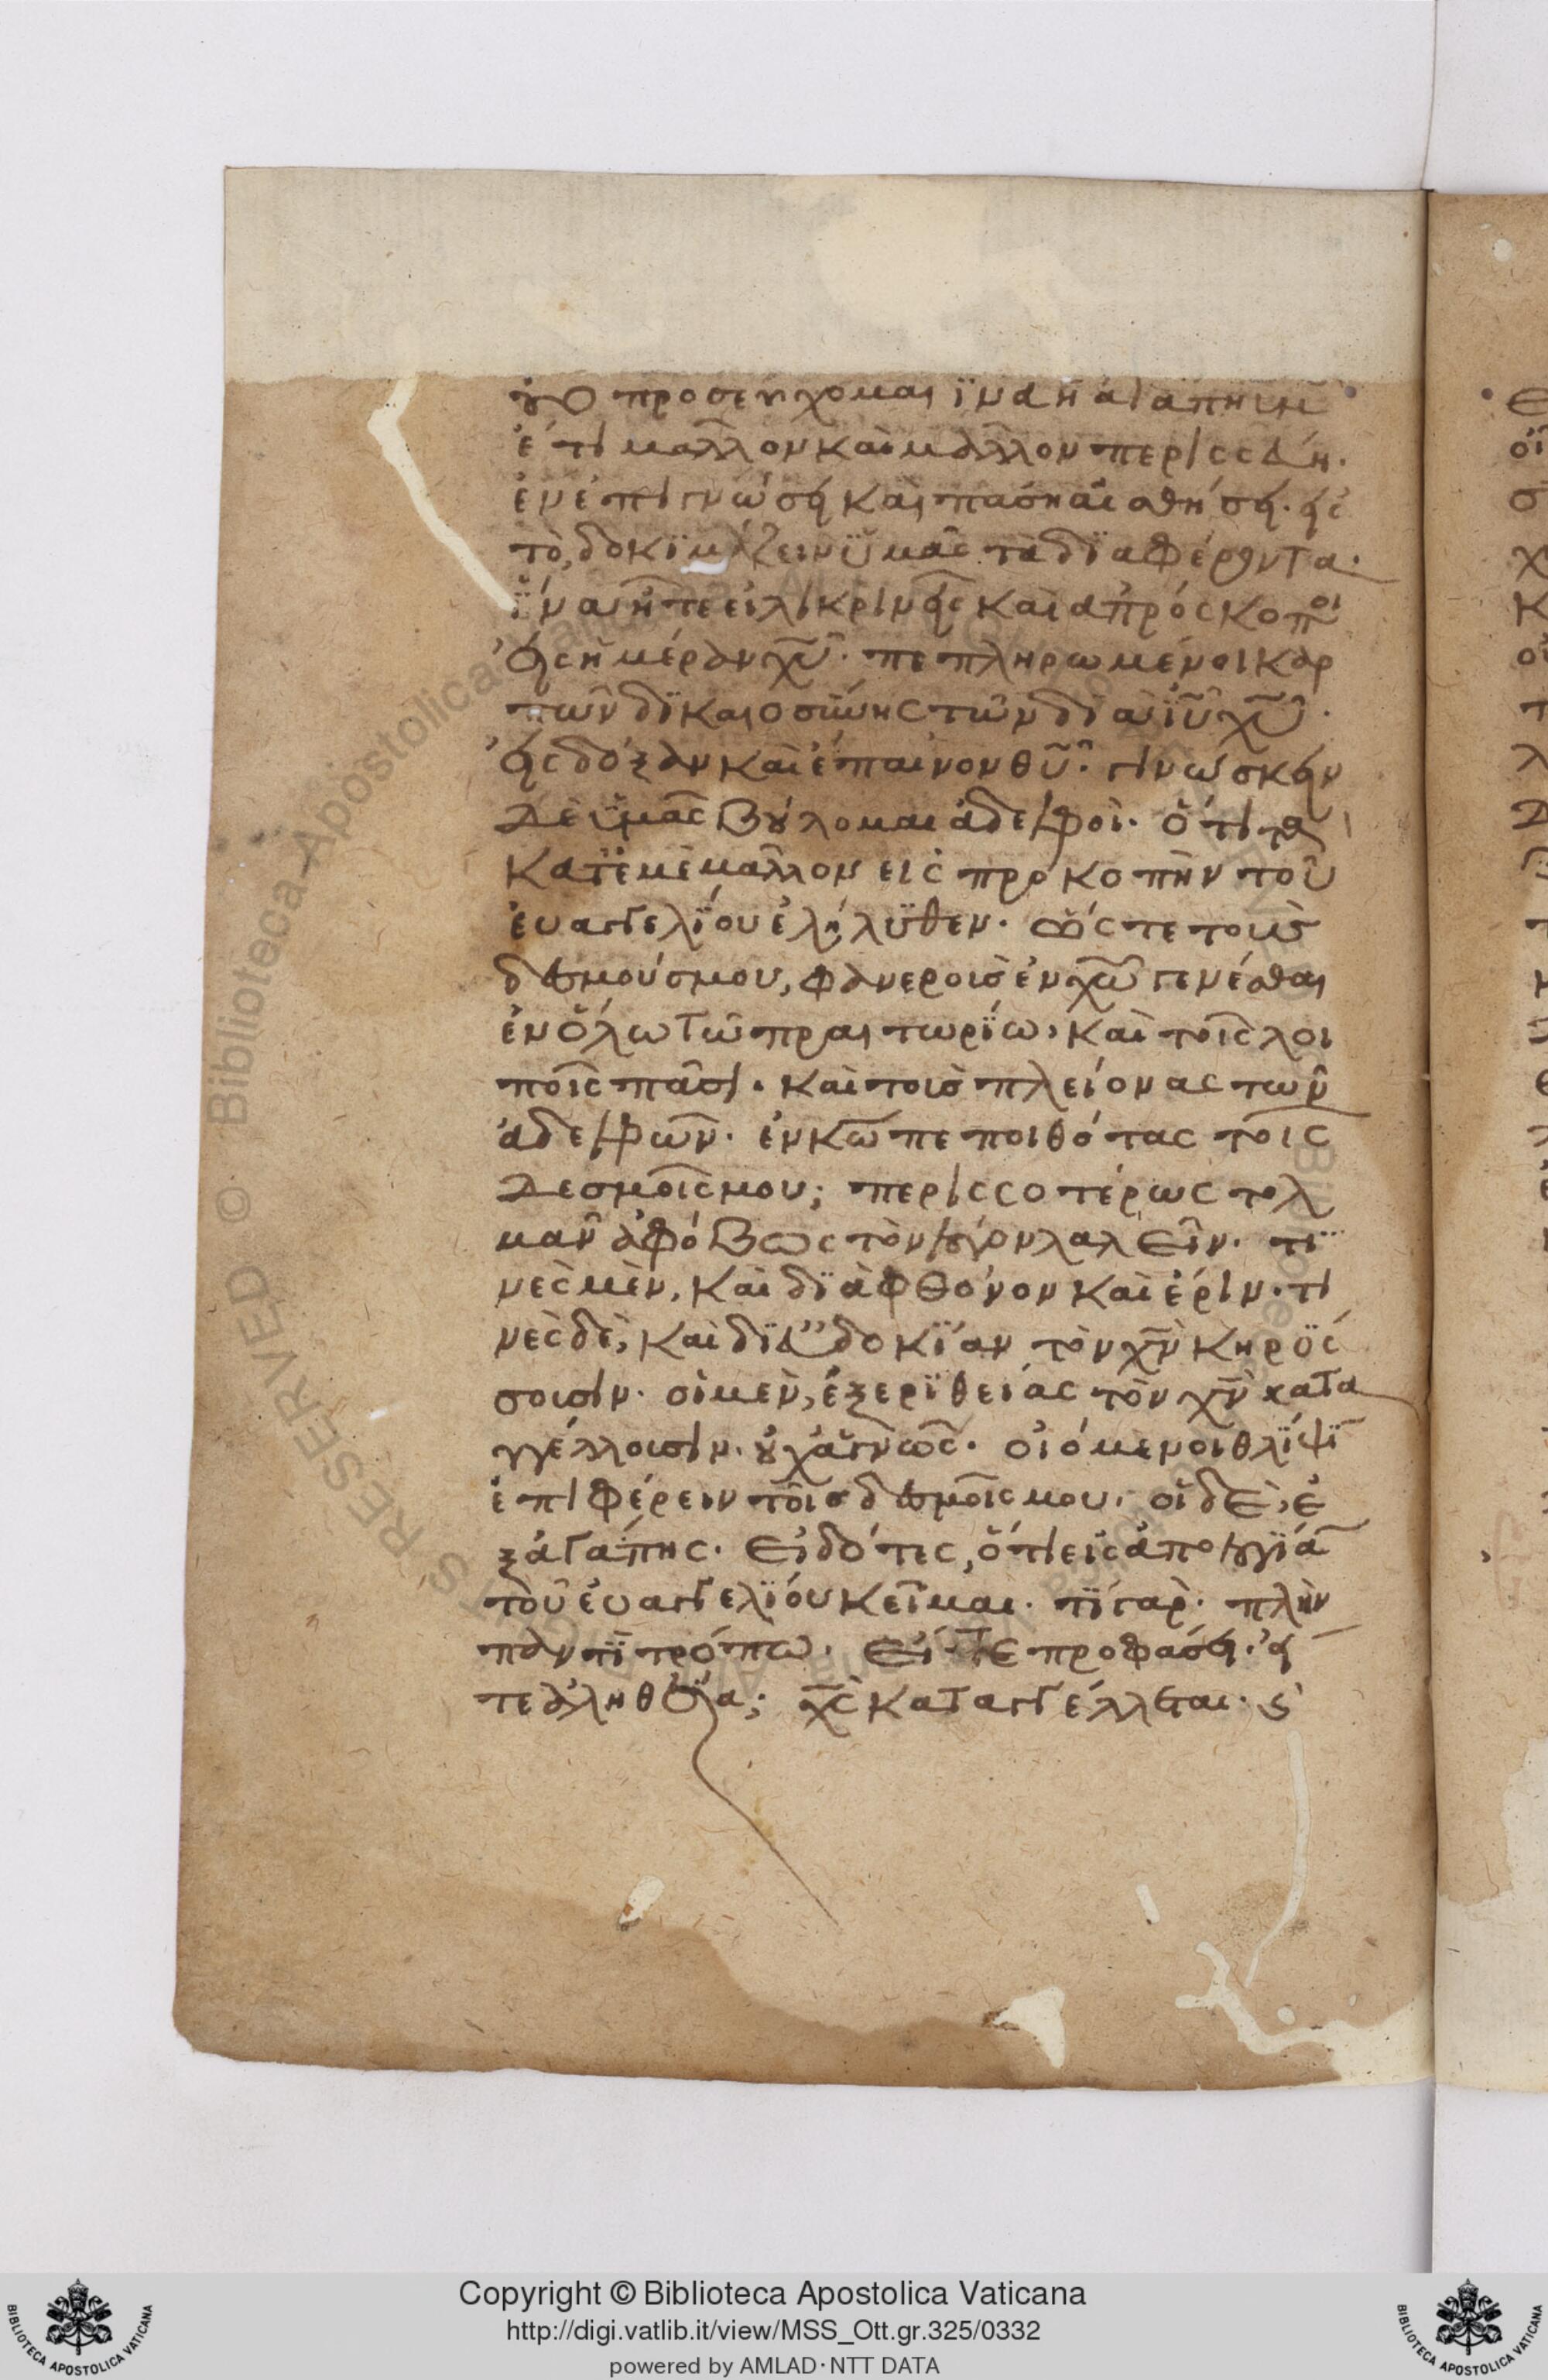 τοῦτο προσεύχομαι ἵνα ἡ ἀγάπη ὑμῶν
ἔτι μᾶλλον καὶ μᾶλλον περισσεύη.
ἐν ἐπιγνώσει καὶ πάση αἰσθήσει. εἰς
τὸ, δοκϊμάζειν ὑμᾶς τὰ δϊαφέροντα.
ἵνα ἦτε εἰλικρινεῖς καὶ ἀπρόσκοποι
εἰς ἡμέραν χυ̅. πεπληρωμένοι καρ
πῶν δϊκαιοσύνης τῶν διὰ ϊυ̅ χυ̅.
εἰς δόξαν καὶ ἔπαινον θυ̅. γινώσκειν
δὲ ὑμᾶς βούλομαι ἀδελφοὶ. ὅτι τὰ
κατ' ἐμὲ μᾶλλον εἰς προκοπὴν τοῦ
ἐυαγγελΐου ἐλήλϋθεν. ὥστε τοὺς
δεσμούς μου, φανεροὺς ἐν χω̅ γενέσθαι
ἐν ὅλω τῶ πραιτωρϊω, καὶ τοῖς λοι
ποῖς πᾶσι. καὶ τοὺς πλείονας τῶν
ἀδελφῶν. ἐν κω̅ πεποιθότας τοῖς
δεσμοῖς μου; περισσοτέρως τολ
μᾶν ἀφόβως τὸν λόγον λαλεῖν. τϊ
νὲς μὲν, καὶ δϊὰ φθόνον καὶ ἔριν. τι
νὲς δὲ, καὶ δϊ' ευδοκΐαν τὸν χν̅ κηρϋσ
σουσιν. οἱ μὲν, ἐξ ερϊθείας τὸν χν̅ κατα
γγέλλουσιν. οὐχ ἁγνῶς. οἰόμενοι θλΐψϊν
ἐπιφέρειν τοῖς δεσμοῖς μου. οἱ δὲ, ἐ
ξ ἀγάπης. εἰδότες, ὅτι εἰς ἀπολογϊάν
τοῦ ἐυαγγελϊόυ κεῖμαι. τΐ γαρ. πλὴν
παντϊ τρόπω. εἴτε προφάσει. εἴ
τε ἀληθεία; χς̅ καταγγέλλεται. ϛ